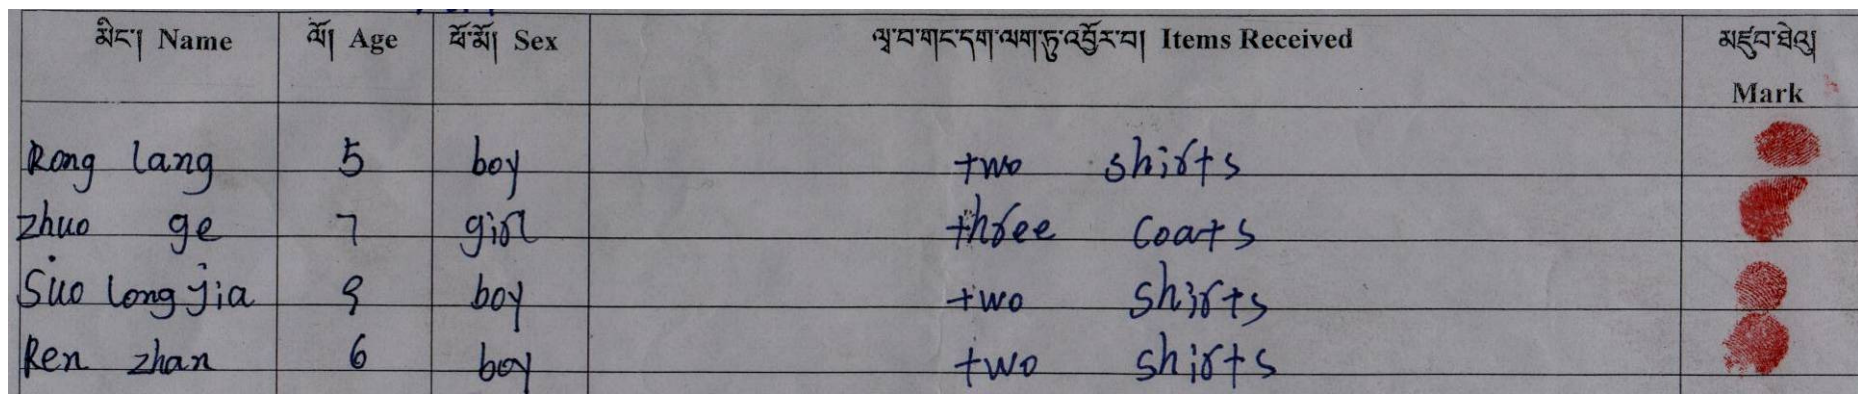 མིང་། Name ལོ། Age ཕོ་མོ། Sex ལྭ་བ་གང་དག་ལག་ཏུ་འབྱོར་བ། Items Received མཛུབ་ཐེལ།
Mark
Rong lang 5 boy two shirts
Zhuo ge 7 girl three coats
Suo long jia 9 boy two shirts
Ren zhan 6 boy two shirts